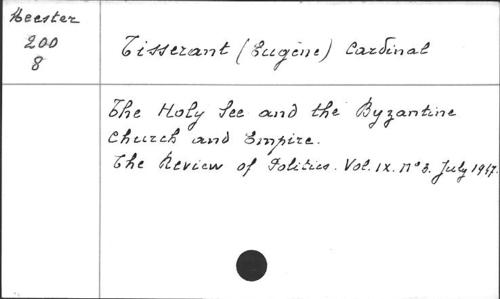 Heester
200
8
Tisserant (Eugène) Cardinal
The Holy See and the Byzantine
Church and Empire.
The Review of Politics. Vol. IX. N° 3. July 1947.